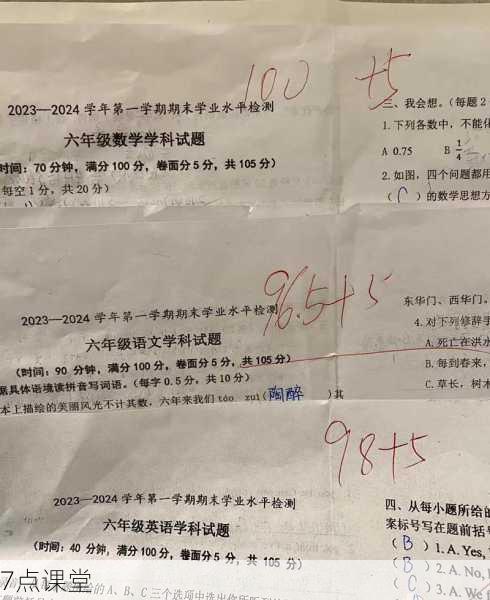 100 +5
2023—2024 学年第一学期期末学业水平检测
六年级数学学科试题
时间：70 分钟，满分 100 分，卷面分 5 分，共 105 分）
每空 1 分，共 20 分）
三、我会想。（每题 2
1. 下列各数中，不能化
A 0.75 B 1/4
2. 如图，四个问题都用
（ C ）的数学思想方
96.5+5
2023—2024 学年第一学期期末学业水平检测
六年级语文学科试题
（时间：90 分钟，满分 100 分，卷面分 5 分，共 105 分）
据具体语境读拼音写词语。（每字 0.5 分，共 10 分）
本上描绘的美丽风光不计其数，六年来我们 táo zuì（陶醉 ）其
东华门、西华门。
4. 对下列修辞手
A. 死亡在洪水
B. 每到春来，
C. 草长，树木
98+5
2023—2024 学年第一学期期末学业水平检测
六年级英语学科试题
（时间：40 分钟，满分 100 分，卷面分 5 分，共 105 分）
的 A、B、C 三个选项中选出你所听
四、从每小题所给的
案标号写在题前括号
（ B ）1. A. Yes,
（ B ）2. A. No, I
（ C ）3. A. We
7点课堂